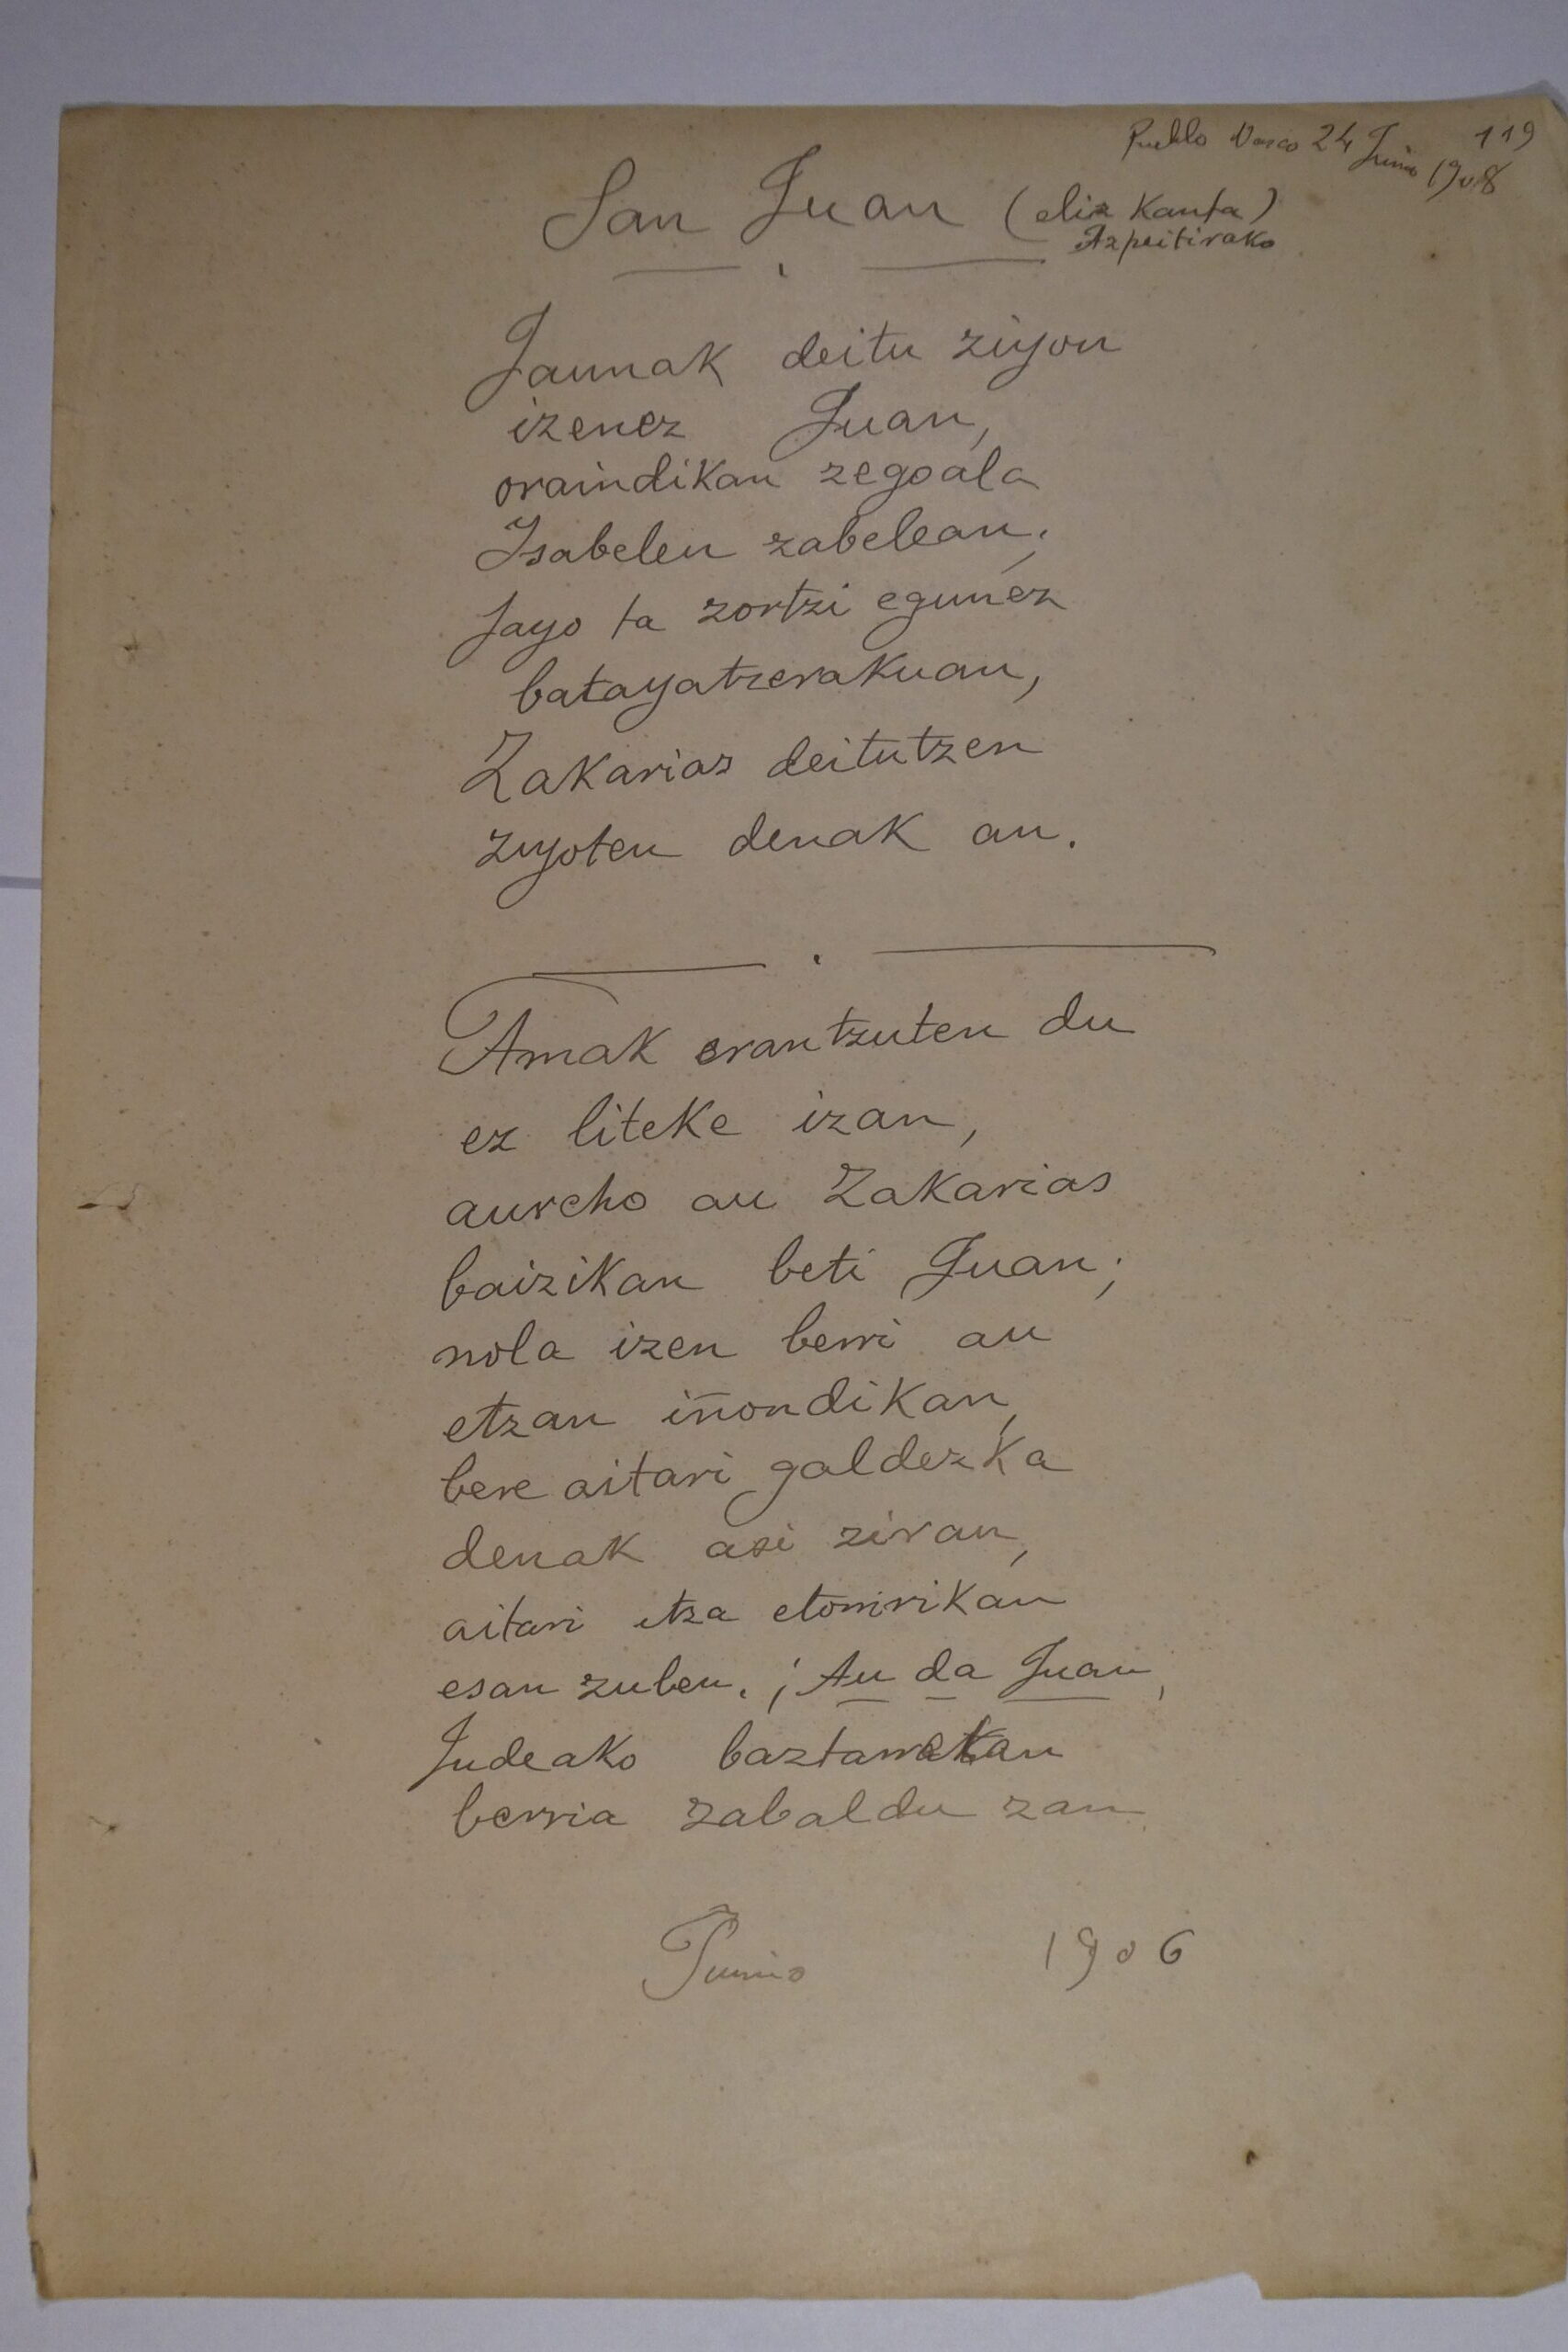 Pueblo Vasco 24 Junio 1908
119
San Juan (eliz kanta)
Azpeitirako
Jaunak deitu ziyon
izenez Juan,
oraindikan zegoala
Isabelen zabelean;
Jayo ta zortzi egunez
batayatzerakuan,
Zakarias deitutzen
ziyoten denak an.
Amak erantzuten du
ez liteke izan,
aurcho au Zakarias
baizikan beti Juan;
nola izen berri au
etzan iñondikan,
bere aitari galdezka
denak asi ziran,
aitari itza etorririkan
esan zuben. ¡Au da Juan,
Judeako baztarretan
berria zabaldu zan.
Junio 1906